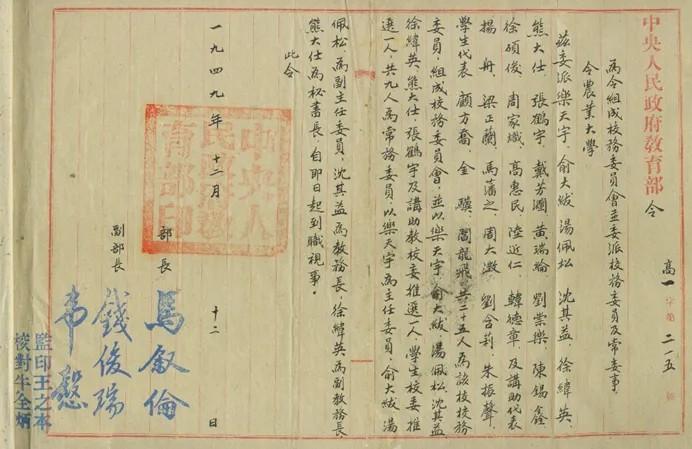 中央人民政府教育部 令
高一字第二一五號
為令組成校務委員會並委派校務委員及常委事。
令農業大學
茲委派樂天宇、俞大紱、湯佩松、沈其益、徐緯英、
熊大仕、張鶴宇、戴芳瀾、黃瑞綸、劉崇樂、陳錫鑫
徐碩俊、周家熾、高惠民、陸近仁、韓德章及講助代表
楊舟、梁正蘭、馬藩之、周大澂、劉含莉、朱振聲、
學生代表顧方喬、金驥、閻龍飛共二十五人為該校校務
委員，組成校務委員會，並以樂天宇、俞大紱、湯佩松、沈其益
徐緯英、熊大仕、張鶴宇及講助教校委推選一人，學生校委推
選一人，共九人為常務委員，以樂天宇為主任委員，俞大紱、湯
佩松為副主任委員，沈其益為教務長，徐緯英為副教務長
熊大仕為秘書長，自即日起到職視事。
此令
部長 馬叙倫
副部長 錢俊瑞
韋愨
一九四九年十二月十二日
中央人民政府教育部印
監印王之本
校對牛全炳